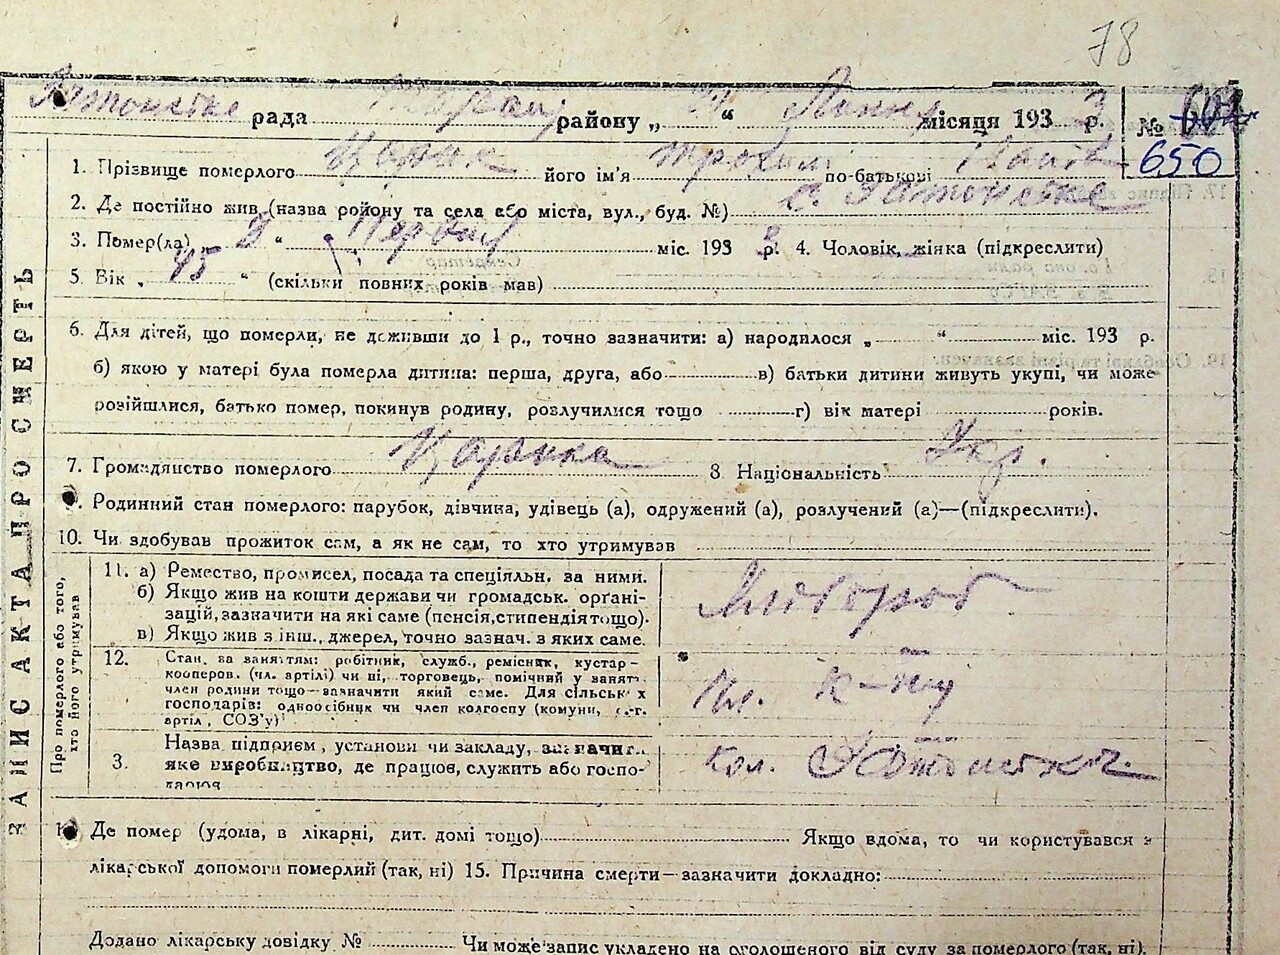 78
рада району „ “ місяця 193 3 р. №
650
1. Прізвище померлого Царик його ім'я трохим по-батькові
2. Де постійно жив (назва ройону та села або міста, вул., буд. №) с. Затонське
3. Помер(ла) „ “ міс. 193 3 р. 4. Чоловік, жінка (підкреслити)
5. Вік „ 45 “ (скільки повних років мав)
6. Для дітей, що померли, не доживши до 1 р., точно зазначити: а) народилося „ “ міс. 193 р.
б) якою у матері була померла дитина: перша, друга, або в) батьки дитини живуть укупі, чи може
розійшлися, батько помер, покинув родину, розлучилися тощо г) вік матері років.
7. Громадянство померлого 8 Національність Укр.
Родинний стан померлого: парубок, дівчина, удівець (а), одружений (а), розлучений (а)—(підкреслити).
10. Чи здобував прожиток сам, а як не сам, то хто утримував
ЗАПИС АКТА ПРО СМЕРТЬ
Про померлого або того, хто його утримував
11. а) Ремество, промисел, посада та спеціяльн. за ними.
б) Якщо жив на кошти держави чи громадськ. орґані-
зацій, зазначити на які саме (пенсія, стипендія тощо).
в) Якщо жив з інш., джерел, точно зазнач. з яких саме.
Хлібороб
12. Стан. за заняттям: робітник, служб., ремісник, кустар-
кооперов. (чл. артілі) чи ні, торговець, помічний у занят.
член родини тощо—зазначити який саме. Для сільськ х
господарів: одноосібник чи член колгоспу (комуни, с.-г.
артіл, СОЗ'у)
3. Назва підприєм, установи чи закладу, зазначит.
яке виробництво, де працюв, служить або госпо-
дарює
кол.
Де помер (удома, в лікарні, дит. домі тощо) Якщо вдома, то чи користувався з
лікарської допомоги померлий (так, ні) 15. Причина смерти—зазначити докладно:
Додано лікарську довідку № Чи може запис укладено на оголошеного від суду за померлого (так, ні).